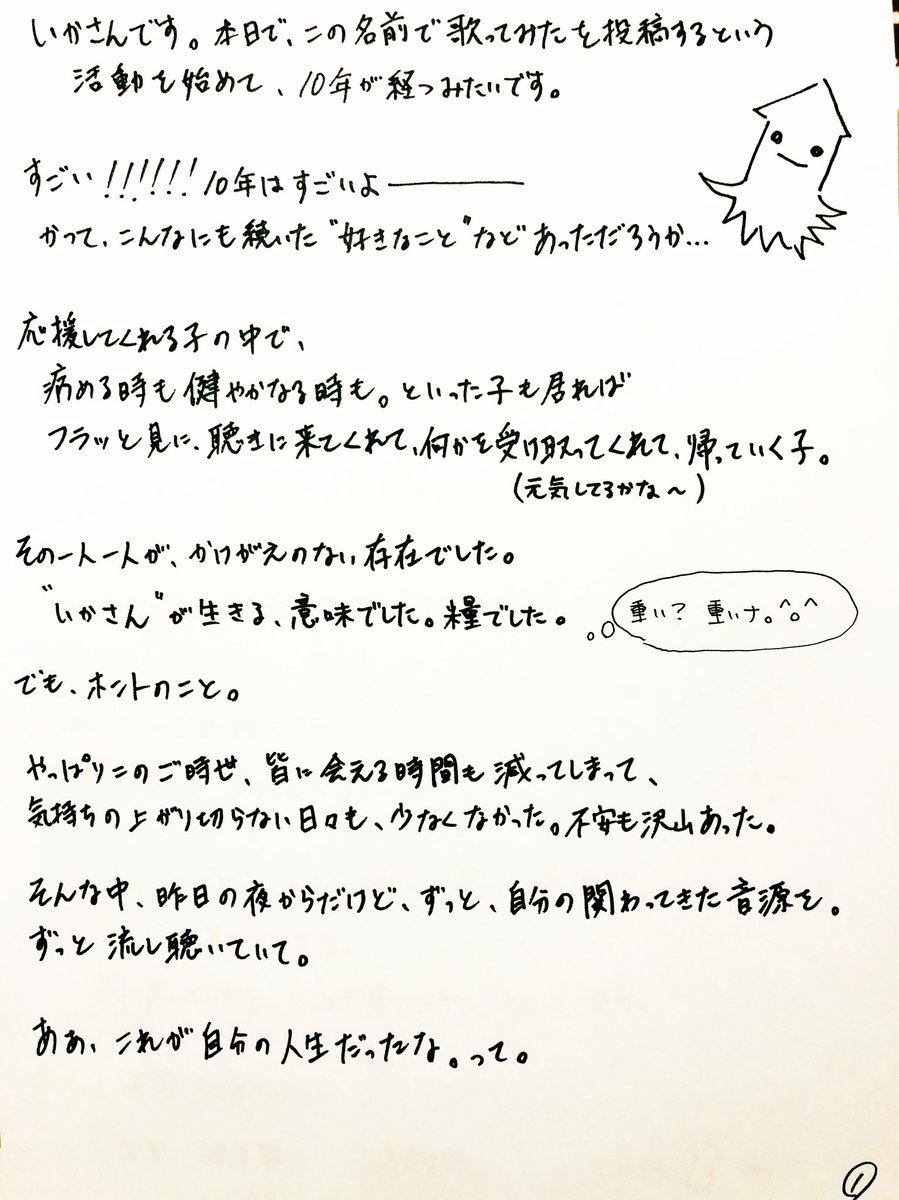 いかさんです。本日で、この名前で歌ってみたを投稿するという
活動を始めて、10年が経つみたいです。
すごい!!!!!! 10年はすごいよ―――
かつて、こんなにも続いた"好きなこと"などあっただろうか…
応援してくれる子の中で、
病める時も健やかなる時も。といった子も居れば
フラッと見に、聴きに来てくれて、何かを受け取ってくれて、帰っていく子。
(元気してるかな〜)
その一人一人が、かけがえのない存在でした。
"いかさん"が生きる、意味でした。糧でした。
重い? 重いナ。^o^
でも、ホントのこと。
やっぱりこのご時世、皆に会える時間も減ってしまって、
気持ちの上がり切らない日々も、少なくなかった。不安も沢山あった。
そんな中、昨日の夜からだけど、ずっと、自分の関わってきた音源を。
ずっと流し聴いていて。
ああ、これが自分の人生だったな。って。
①